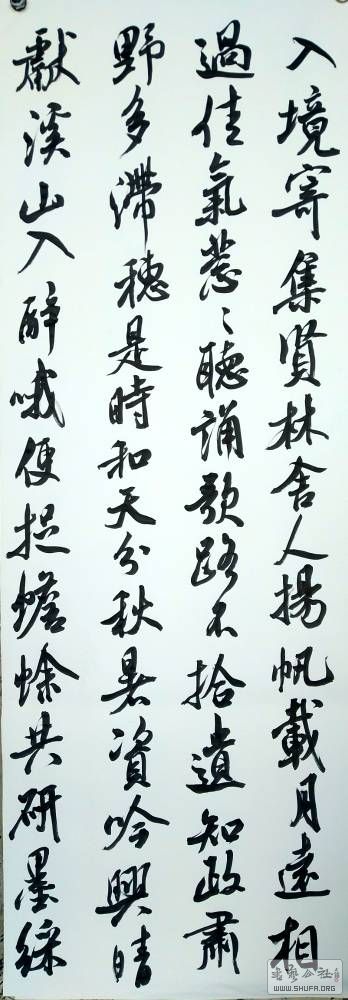 入境寄集賢林舍人揚帆載月遠相
過佳氣葱〻聽誦歌路不拾遺知政肅
野多滯穗是時和天分秋暑資吟興晴
獻溪山入醉哦便捉蟾蜍共研墨綵
WWW.SHUFA.ORG